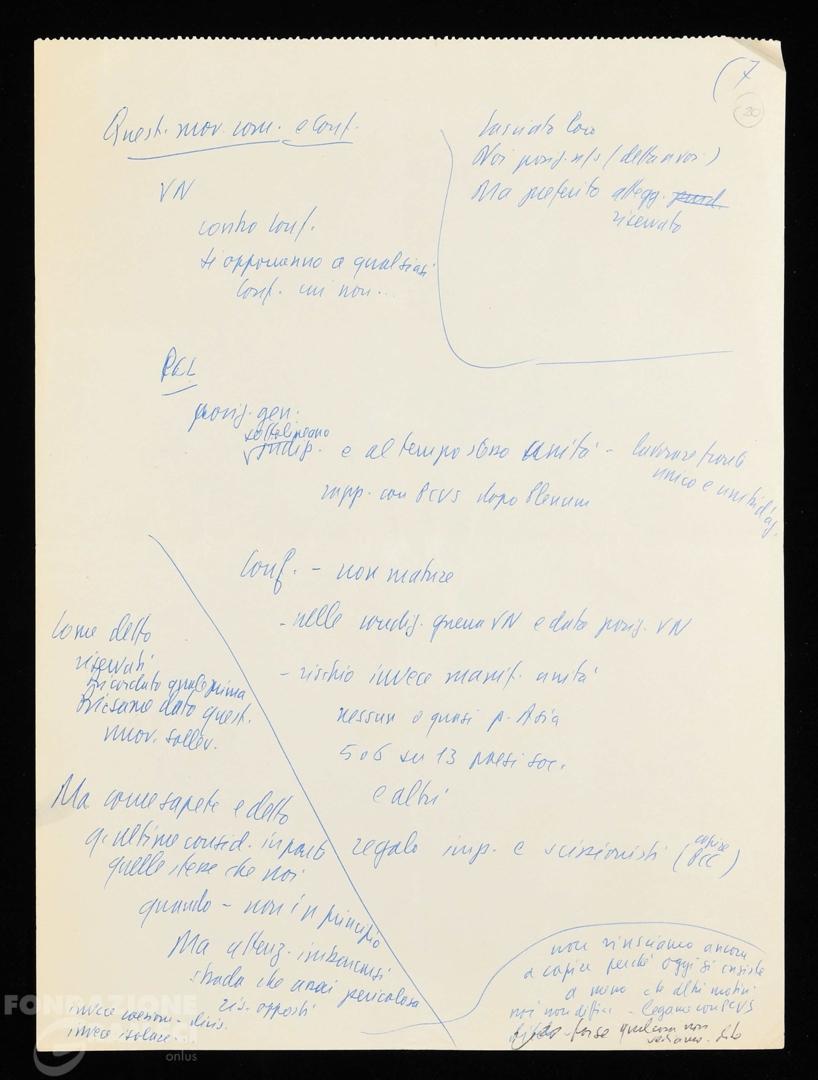 (7
20
Quest. mov. com. e conf.
VN
contro conf.
si opporranno a qualsiasi
conf. cui non...
lasciato loro
Noi posiz. n/s (detta a voi)
Ma preferito attegg.
riservato
PCL
posiz. gen.
sottolineano
indip. e al tempo stesso unità - lavorare fronti
unico e unità d'az.
rapp. con PCUS dopo Plenum
Conf. - non mature
- nelle condiz. guerra VN e data posiz. VN
- rischio invece manif. unità
nessun o quasi p. Asia
5 o 6 su 13 paesi soc.
e altri
regalo imp. e scissionisti (capire PCC)
Come detto
riservati
ricordato quale prima
dato quest.
nuov. sollev.
Ma come sapete e detto
q. ultime consid. in parte
quelle stesse che noi
quando - non in principio
Ma attenz. imbarcarsi
strada che anai pericolosa
ris. opposti
invece coesione - divis.
invece isolare.
non riusciamo ancora
a capire perché oggi si insiste
a meno che altri motivi
noi non diffic. - legame con PCUS
- forse qualcosa non
vediamo.
FONDAZIONE
onlus